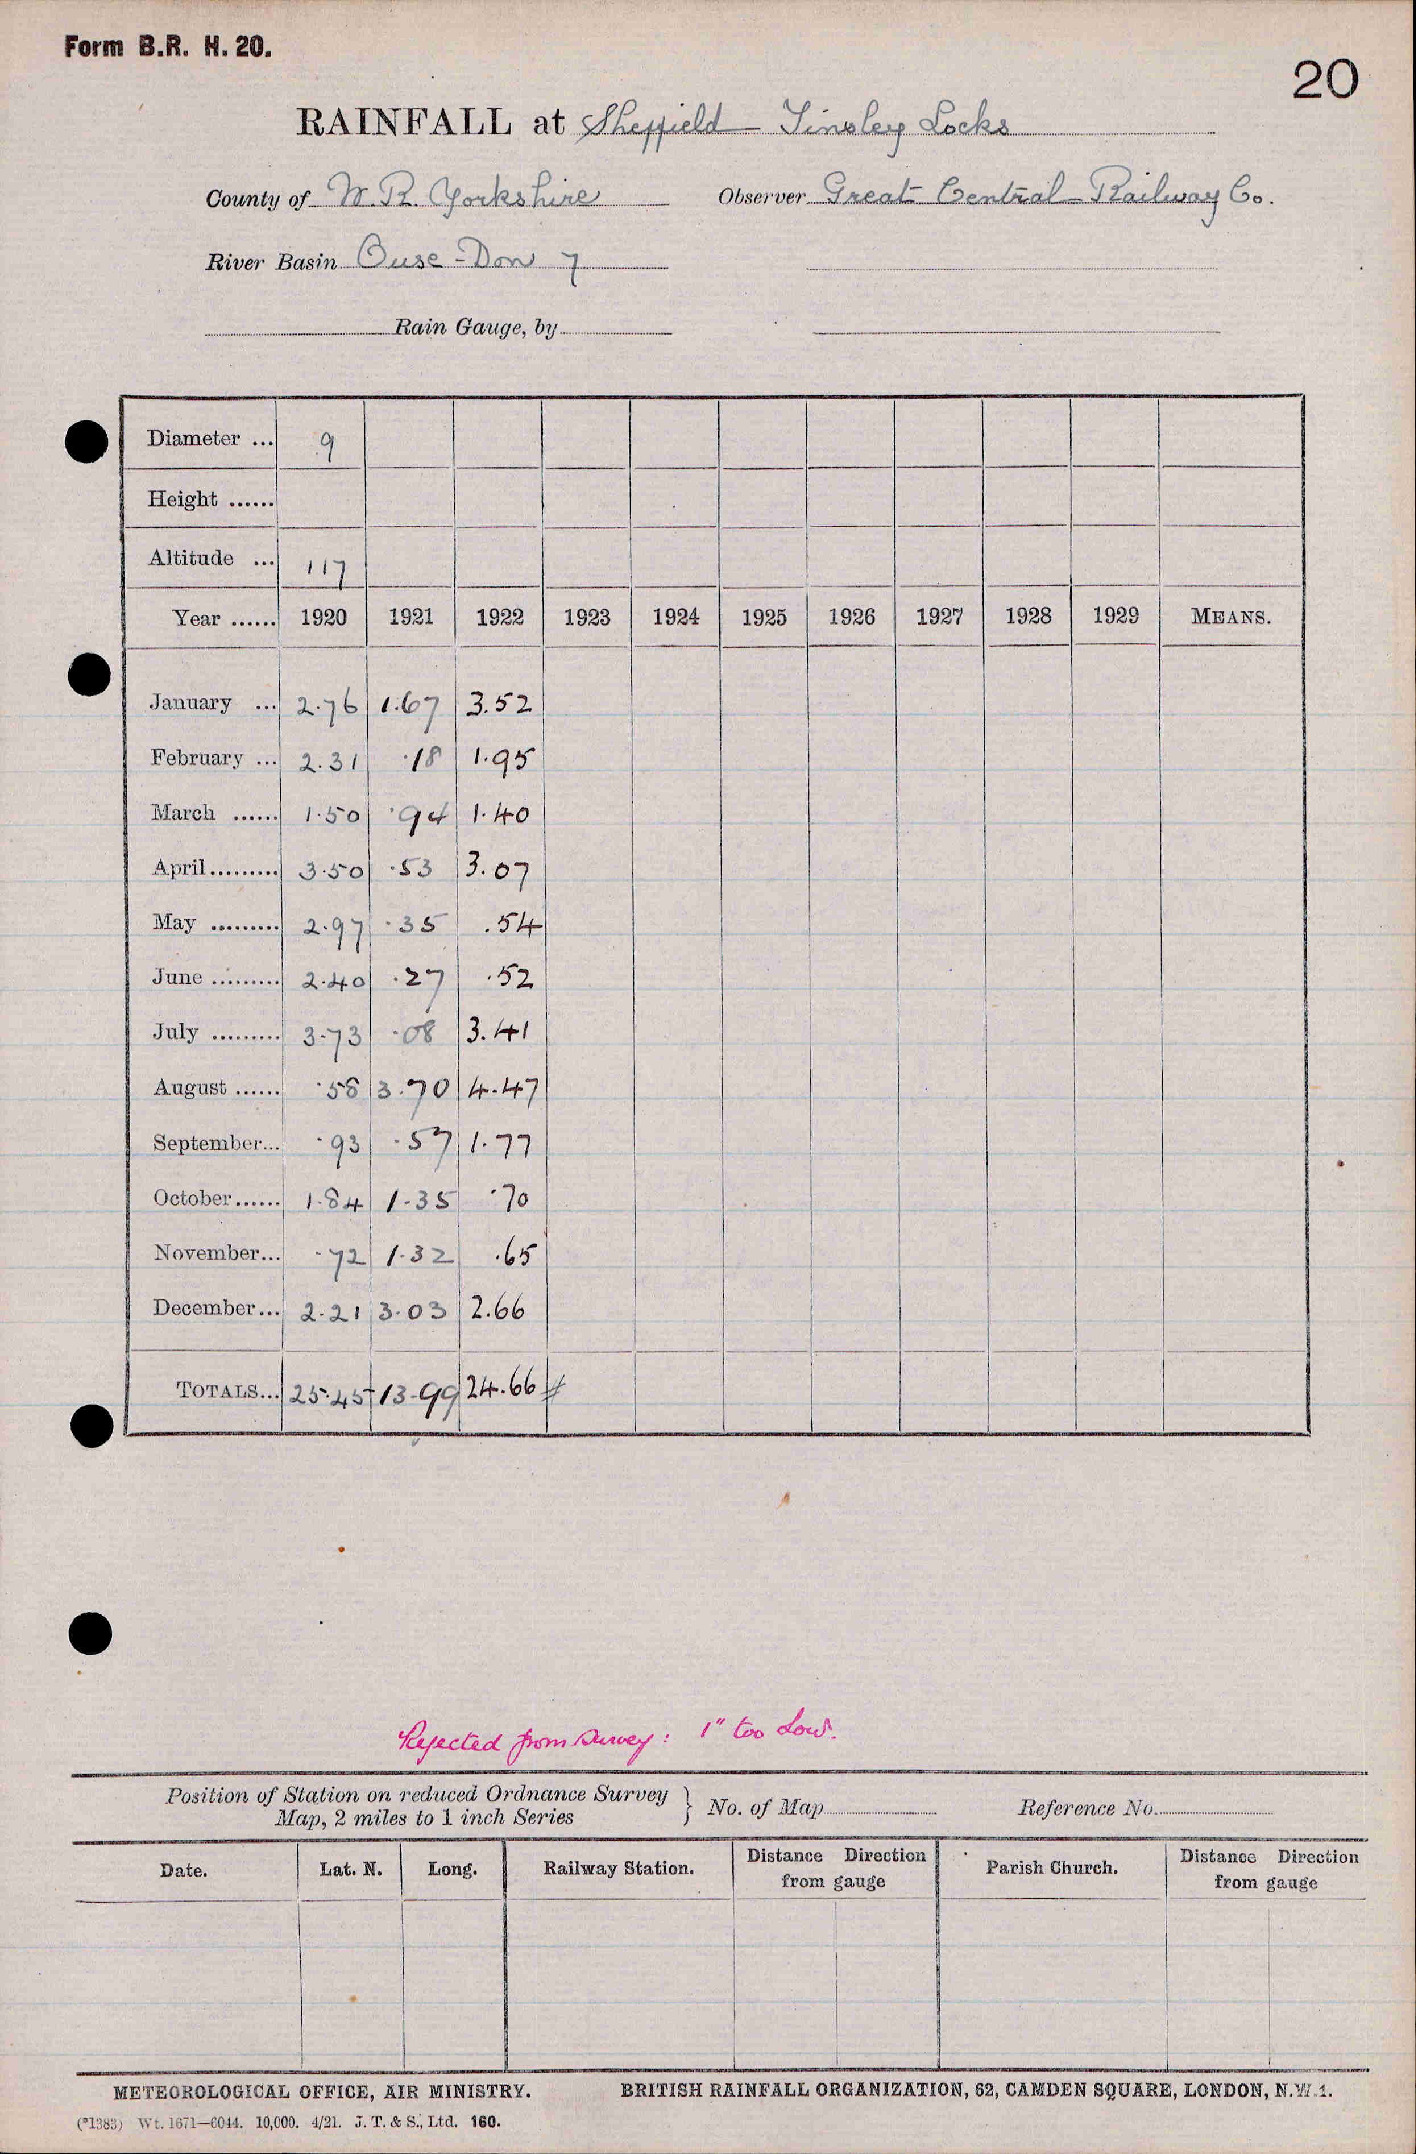 Form B.R. H. 20.
20
RAINFALL at Sheffield - Tinsley Locks
County of W. R. Yorkshire Observer Great Central Railway Co.
River Basin Ouse - Don 7
Rain Gauge, by
Diameter ... 9
Height ......
Altitude ... 117
Year ...... 1920 1921 1922 1923 1924 1925 1926 1927 1928 1929 MEANS.
January ... 2.76 1.67 3.52
February ... 2.31 .18 1.95
March ...... 1.50 .94 1.40
April......... 3.50 .53 3.07
May ......... 2.97 .35 .54
June ......... 2.40 .27 .52
July ......... 3.73 .08 3.41
August ...... .58 3.70 4.47
September... .93 .57 1.77
October...... 1.84 1.35 .70
November... .72 1.32 .65
December... 2.21 3.03 2.66
TOTALS... 25.45 13.99 24.66 #
Rejected from survey: 1" too low.
Position of Station on reduced Ordnance Survey
Map, 2 miles to 1 inch Series } No. of Map Reference No.
Date. Lat. N. Long. Railway Station. Distance Direction from gauge Parish Church. Distance Direction from gauge
METEOROLOGICAL OFFICE, AIR MINISTRY. BRITISH RAINFALL ORGANIZATION, 62, CAMDEN SQUARE, LONDON, N.W.1.
(*1383) Wt. 1671—6044. 10,000. 4/21. J. T. & S., Ltd. 160.